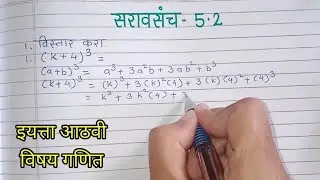 सरावसंच - 5.2
1. विस्तार करा
1. (k+4)³ =
(a+b)³ = a³ + 3a²b + 3ab² + b³
(k+4)³ = (k)³ + 3(k)²(4) + 3(k)(4)² + (4)³
= k³ + 3k²(4) +
इयत्ता आठवी
विषय गणित